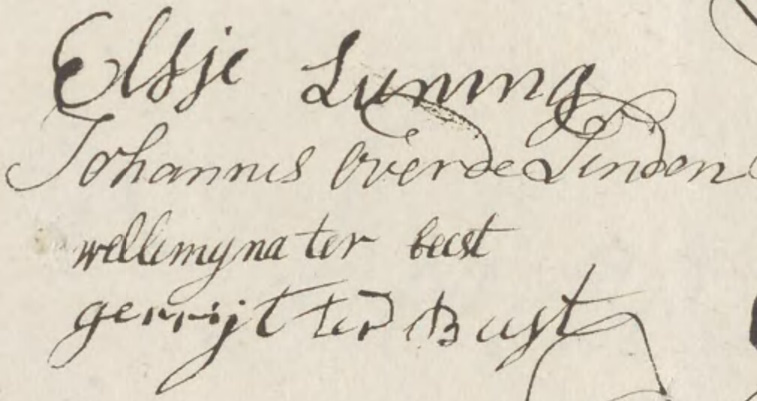 Elsje Luning
Johannis Over de Linden
wellemyna ter beest
gerrijt ter Beest